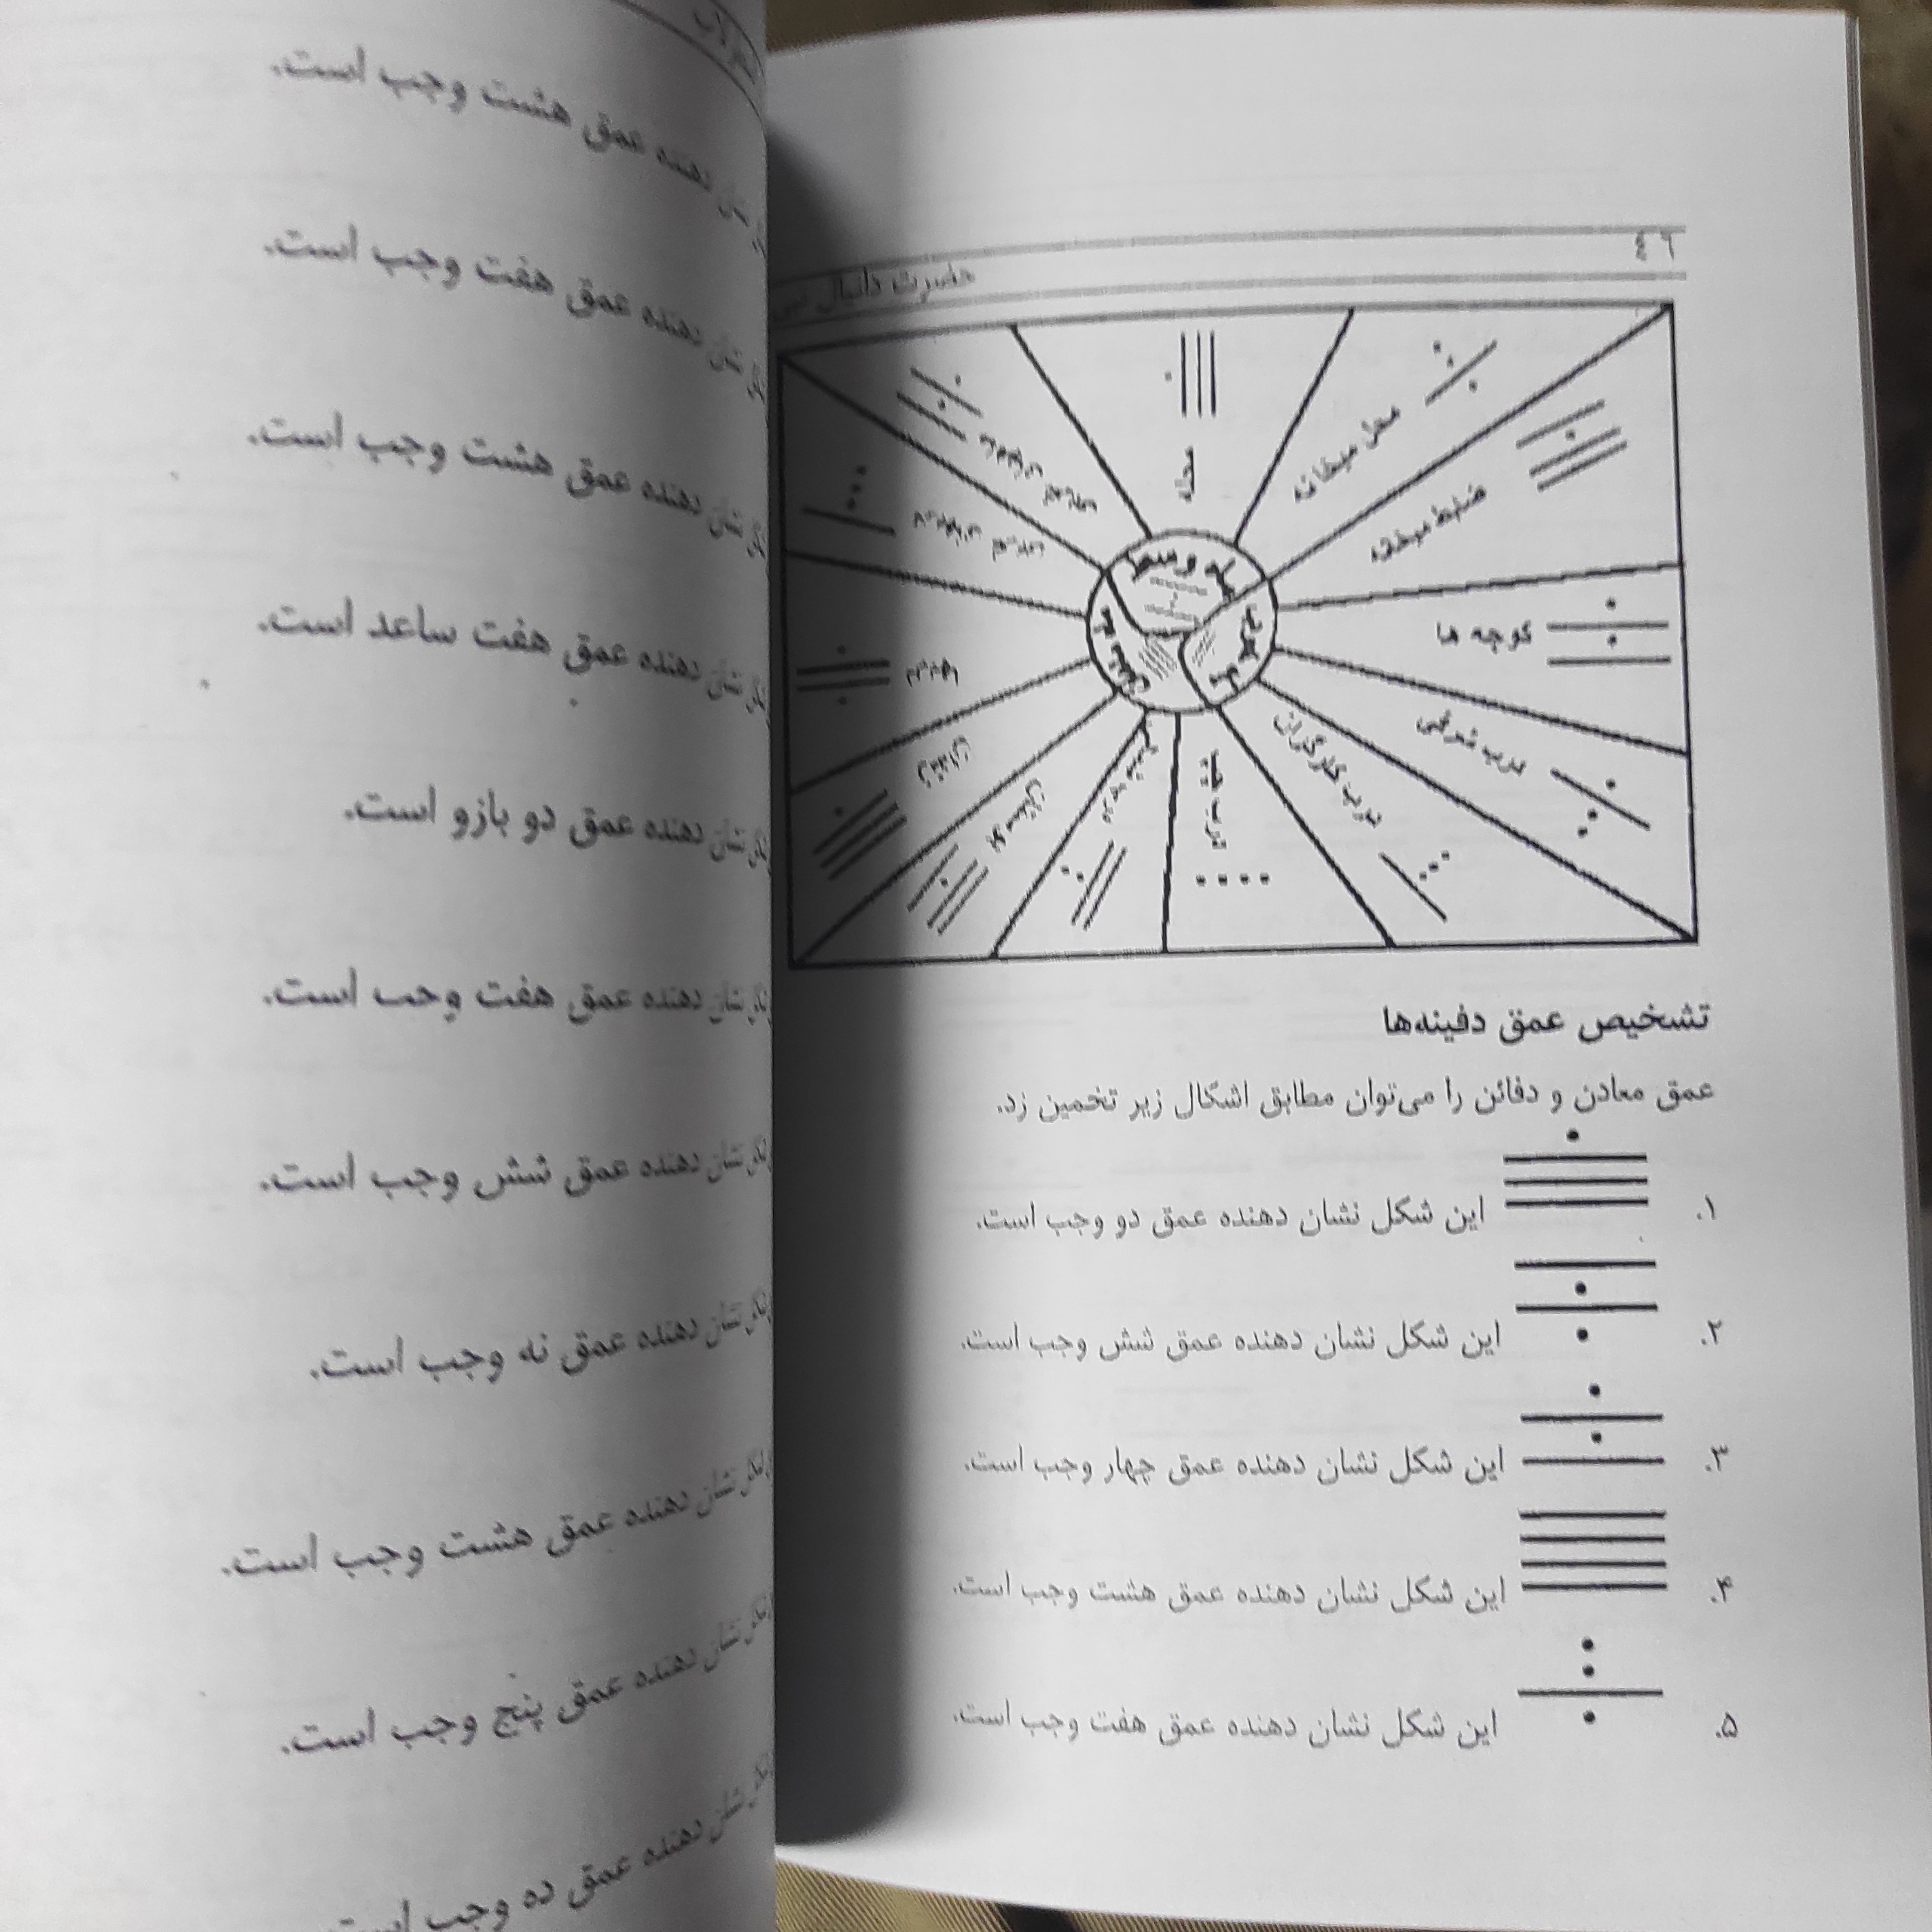 ٤٦
حضرت دانیال نبی
محله
محل میخانه
کوچه ها
درب شرقی
درب کارگران
بوستان
تشخیص عمق دفینه‌ها
عمق معادن و دفائن را می‌توان مطابق اشکال زیر تخمین زد.
۱. این شکل نشان دهنده عمق دو وجب است.
۲. این شکل نشان دهنده عمق شش وجب است.
۳. این شکل نشان دهنده عمق چهار وجب است.
۴. این شکل نشان دهنده عمق هشت وجب است.
۵. این شکل نشان دهنده عمق هفت وجب است.
نشان دهنده عمق هشت وجب است.
نشان دهنده عمق هفت وجب است.
نشان دهنده عمق هشت وجب است.
نشان دهنده عمق هفت ساعد است.
نشان دهنده عمق دو بازو است.
نشان دهنده عمق هفت وجب است.
نشان دهنده عمق شش وجب است.
نشان دهنده عمق نه وجب است.
نشان دهنده عمق هشت وجب است.
نشان دهنده عمق پنج وجب است.
نشان دهنده عمق ده وجب است.